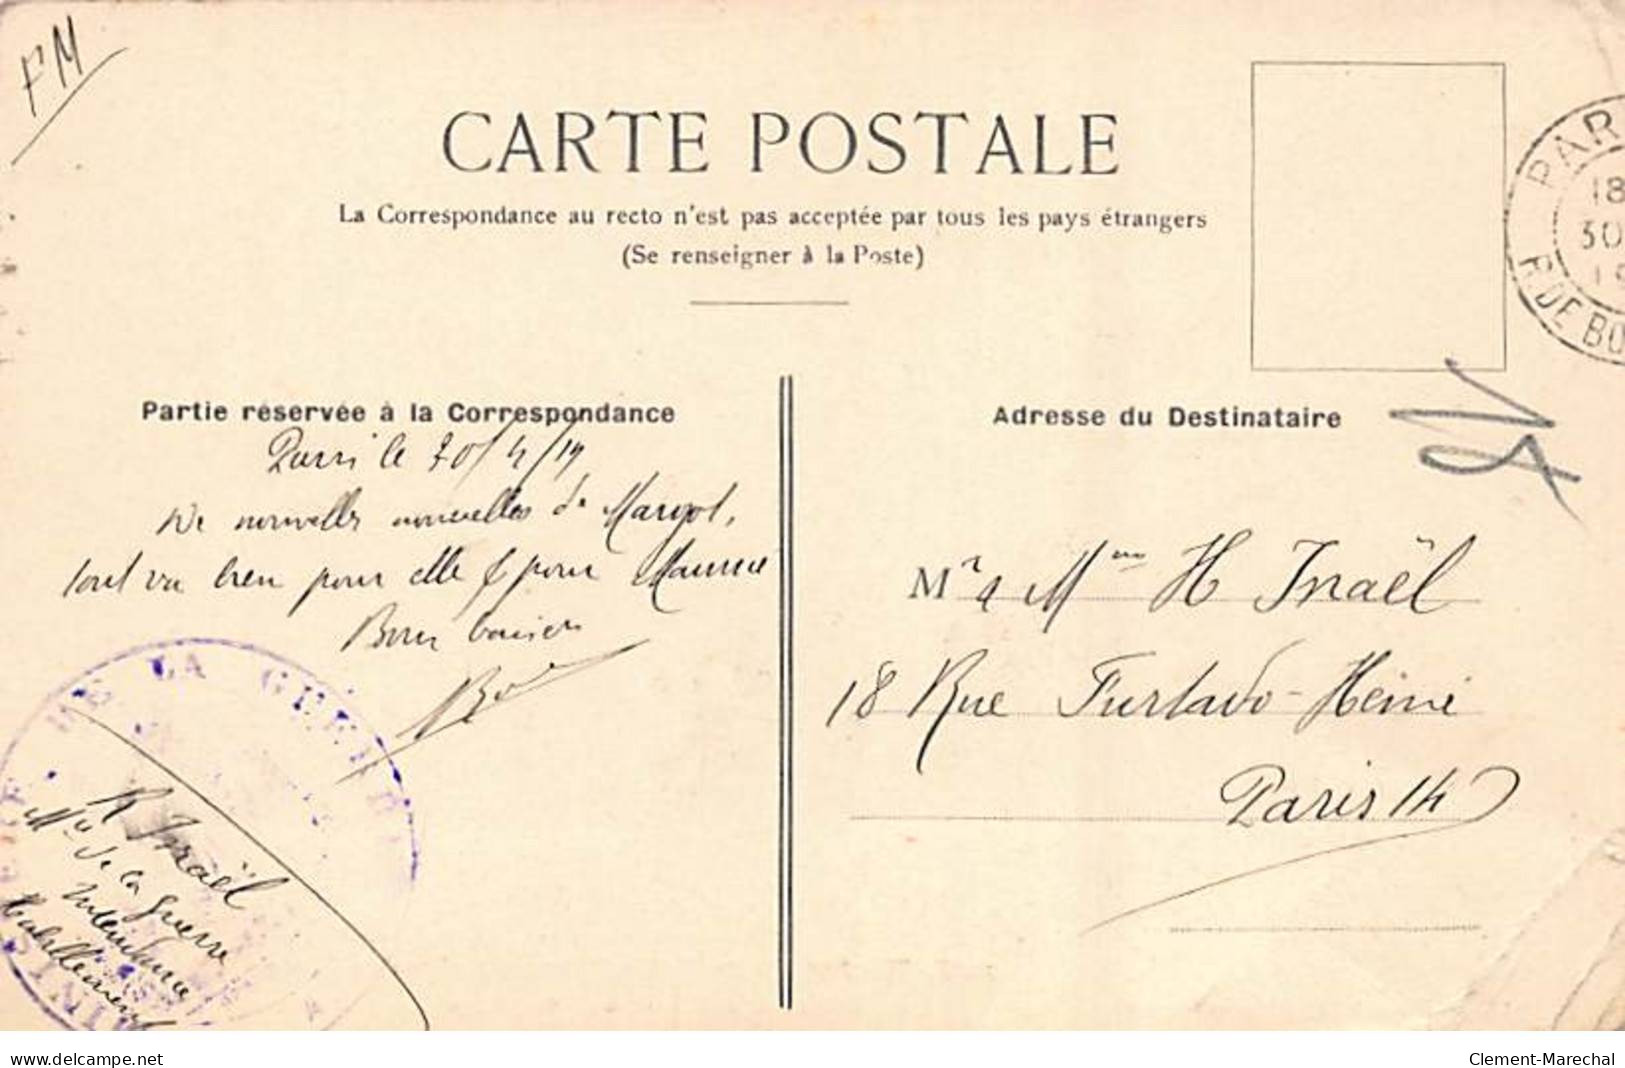 FM
CARTE POSTALE
La Correspondance au recto n'est pas acceptée par tous les pays étrangers
(Se renseigner à la Poste)
PAR
18
30
19
R. DE BO
Partie réservée à la Correspondance
Adresse du Destinataire
Paris le 30/4/19
De nouvelles nouvelles de Margot,
tout va bien pour elle & pour Maurice
Bons baisers
Mr & Mme H Israël
18 Rue Furtado-Heine
Paris 14
DE LA GUERRE
R Israël
Mre de la guerre
Intendance
Habillement
www.delcampe.net
Clement-Marechal